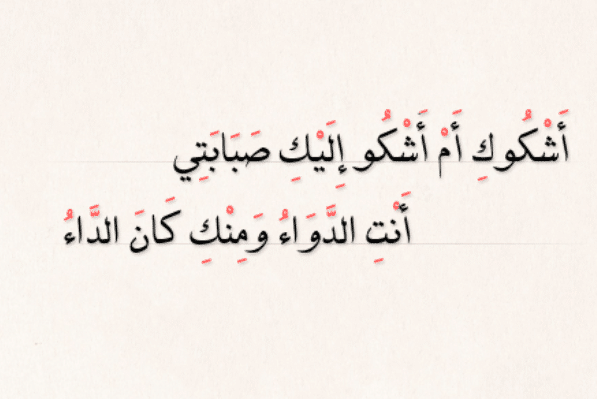 أَشْكُوكِ أَمْ أَشْكُو إِلَيْكِ صَبَابَتِي
أَنْتِ الدَّوَاءُ وَمِنْكِ كَانَ الدَّاءُ